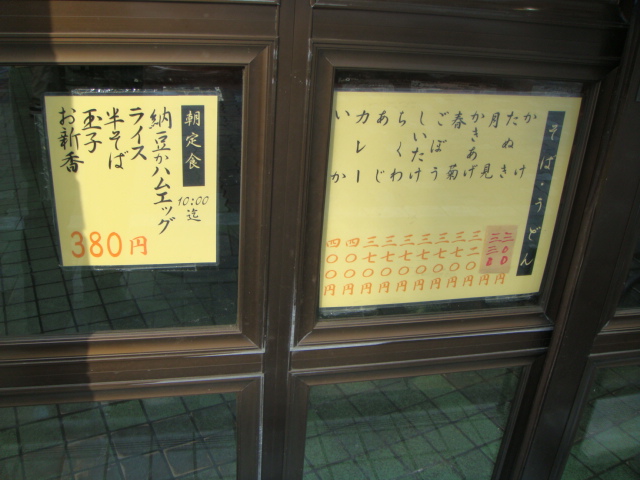 朝定食
10:00迄
納豆かハムエッグ
ライス
半そば
玉子
お新香
380円
そば・うどん
かけ
たぬき
月見
かきあげ 三二〇円
春菊 三七〇円
ごぼう 三七〇円
しいたけ 三七〇円
ちくわ 三七〇円
あじ 三七〇円
カレー 四〇〇円
いか 四〇〇円